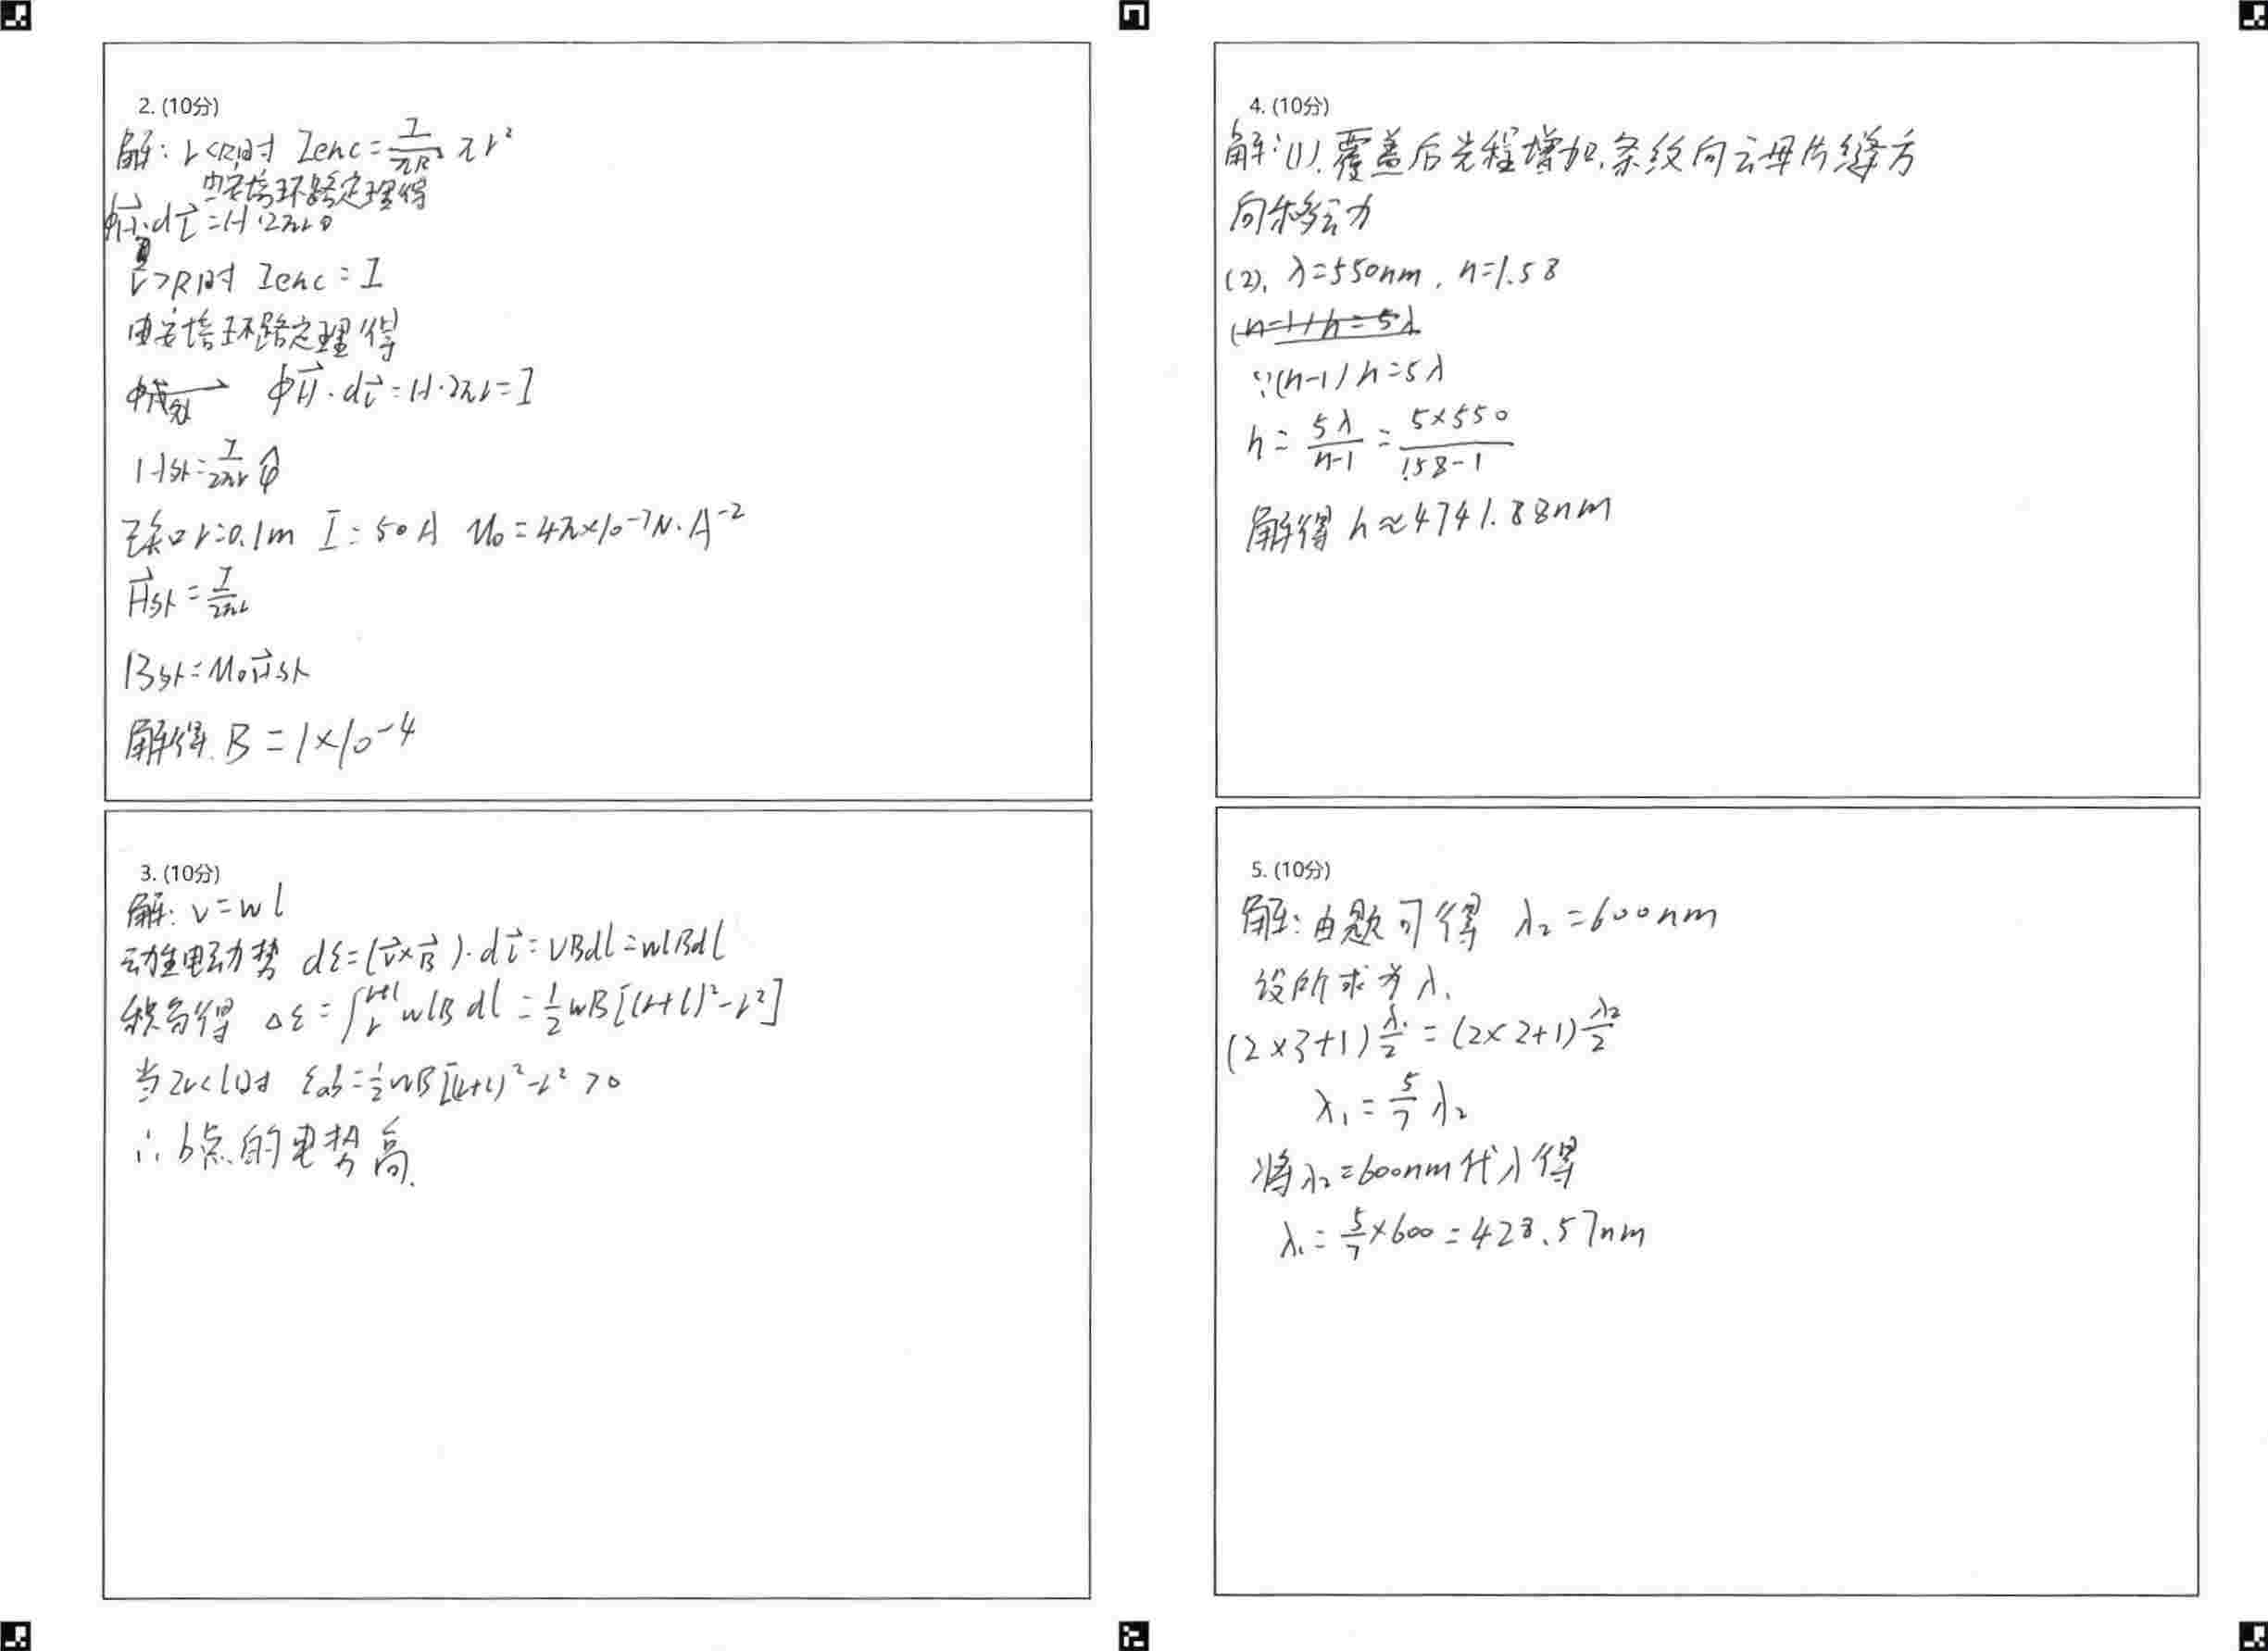 2. (10分)
解: r<R时 Ienc = I/πR² πr²
由安培环路定理得
∮H·dl = H·2πr
r>R时 Ienc = I
由安培环路定理得
∮H·dl = H·2πr = I
H外 = I/2πr φ̂
已知 r=0.1m I=50A μ0=4π×10⁻⁷N·A⁻²
H外 = I/2πr
B外 = μ0H外
解得. B = 1×10⁻⁴
3. (10分)
解: v=wl
动生电动势 dε=(v×B)·dl=vBdl=wlBdl
积分得 Δε=∫ᵣʳ⁺ˡ wlB dl = 1/2 wB[(r+l)²-r²]
当2r<l时 εab=1/2 wB[(r+l)²-r² >0
∴ b点的电势高.
4. (10分)
解: (1). 覆盖后光程增加, 条纹向云母片缝方
向移动
(2). λ=550nm, n=1.58
(n-1)h=5λ
∵(n-1)h=5λ
h = 5λ/n-1 = 5×550/1.58-1
解得 h≈4741.88nm
5. (10分)
解: 由题可得 λ₂=600nm
设所求为λ₁
(2×3+1)λ₁/2 = (2×2+1)λ₂/2
λ₁ = 5/7 λ₂
将λ₂=600nm代入得
λ₁ = 5/7×600 = 428.57nm